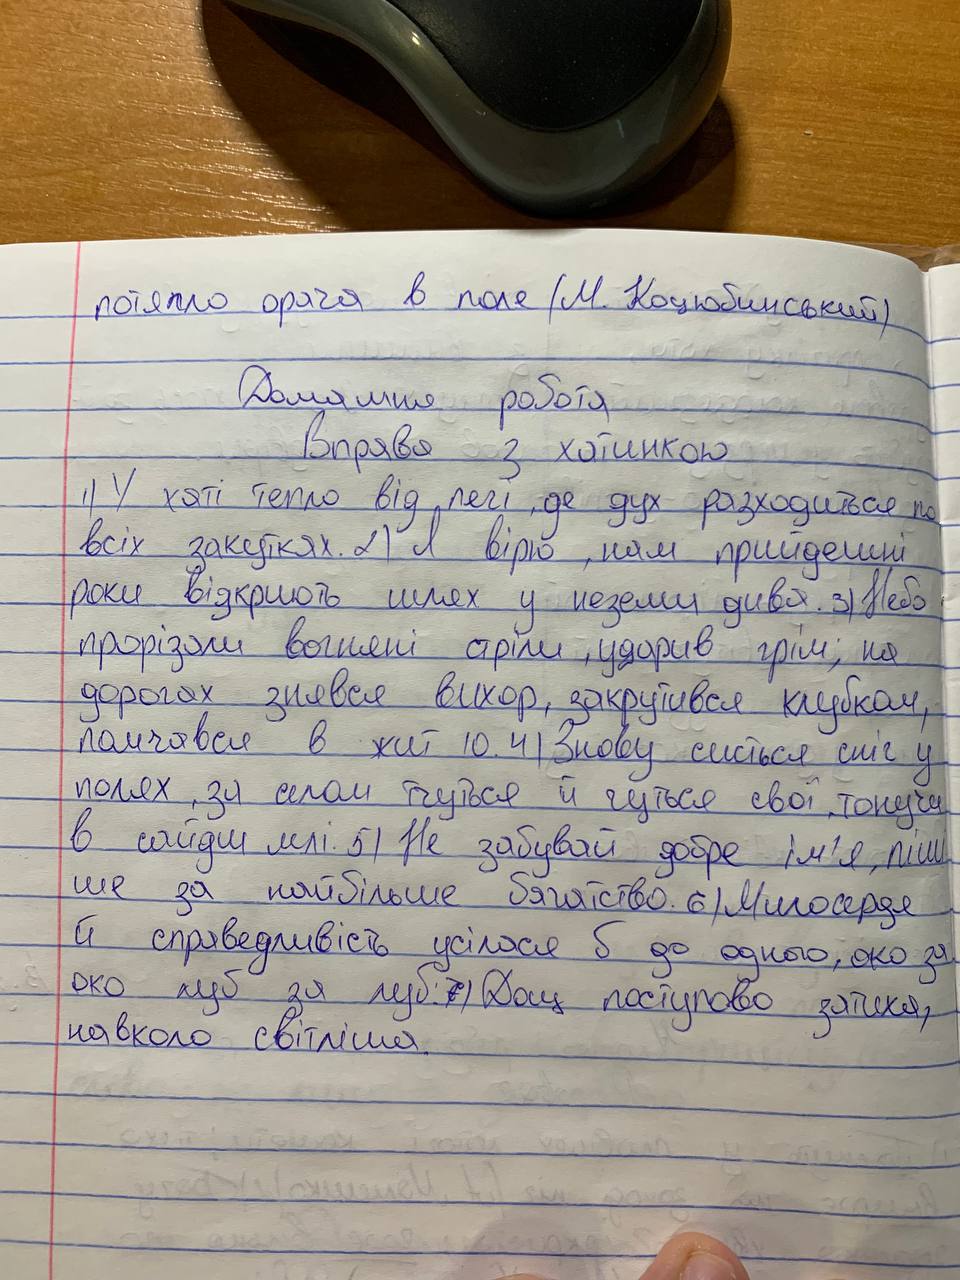 потягло орача в поле (М. Коцюбинський)
Домашня робота
Вправа з хатинкою
1) У хаті тепло від печі, де дух разходиться по
всіх закутках. 2) Я вірю, нам прийдешні
роки відкриють шлях у неземні дива. 3) Небо
прорізали вогняні стріли, ударив грім, на
дорогах знявся вихор, закрутився клубком,
помчався в жит ю. 4) Знову сиється сніг у
полях, за селом чуться й чуться свої, тонучи
в сайдиш млі. 5) Не забувай добре ім'я, ліш
ше за найбільше багатство. 6) Милосердя
й справедливість усілося б до одного, око за
око зуб за зуб. 7) Дощ поступово затиха,
навколо світліша.